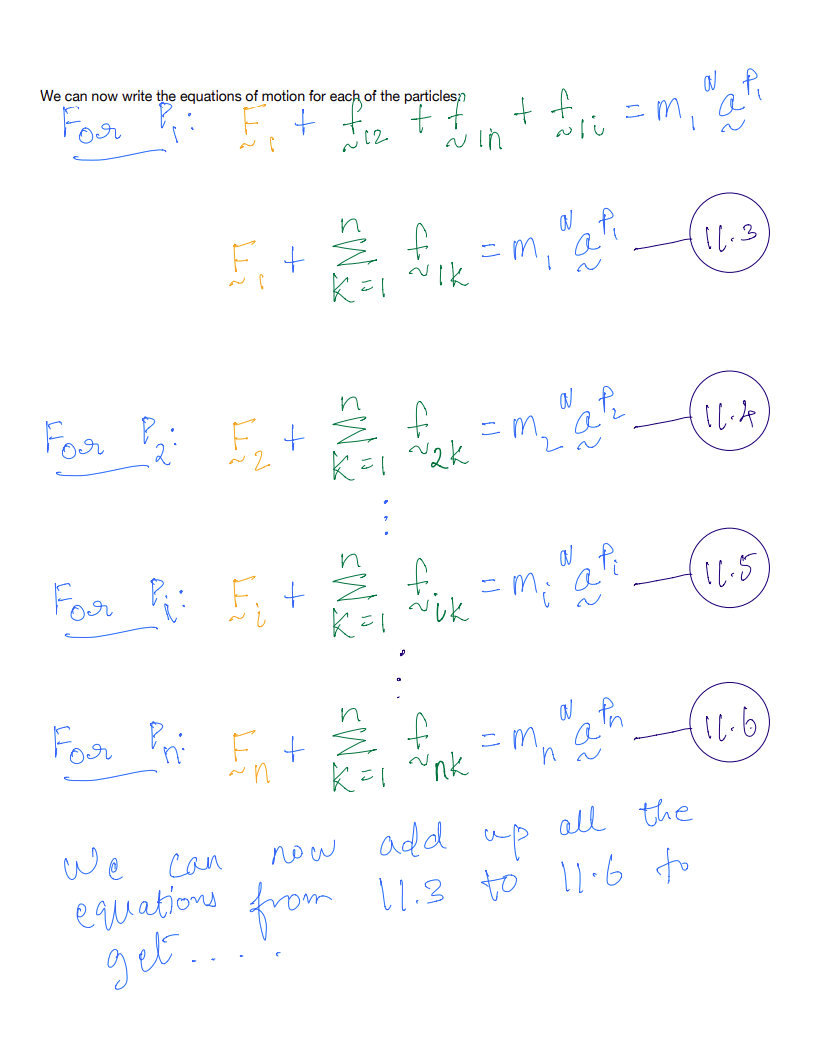 We can now write the equations of motion for each of the particles:
For P₁: F̰₁ + f̰₁₂ + f̰₁ₙ + f̰₁ᵢ = m₁ ᴺa̰ᴾ¹
F̰₁ + Σₖ₌₁ⁿ f̰₁ₖ = m₁ ᴺa̰ᴾ¹ — 11.3
For P₂: F̰₂ + Σₖ₌₁ⁿ f̰₂ₖ = m₂ ᴺa̰ᴾ² — 11.4
⋮
For Pᵢ: F̰ᵢ + Σₖ₌₁ⁿ f̰ᵢₖ = mᵢ ᴺa̰ᴾⁱ — 11.5
⋮
For Pₙ: F̰ₙ + Σₖ₌₁ⁿ f̰ₙₖ = mₙ ᴺa̰ᴾⁿ — 11.6
We can now add up all the
equations from 11.3 to 11.6 to
get.....